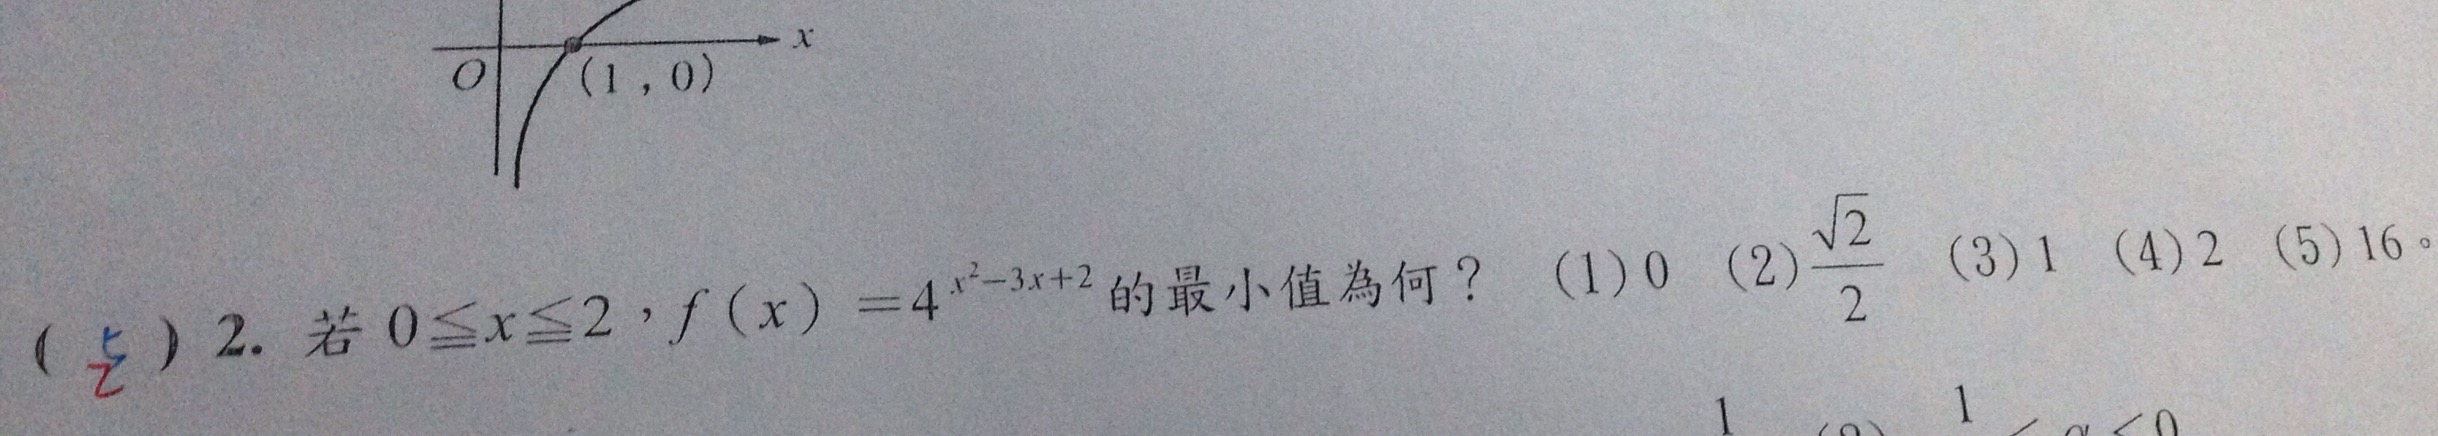 x
O (1,0)
(5) 2. 若 0≦x≦2,f(x)=4^{x²-3x+2} 的最小值為何? (1)0 (2)√2/2 (3)1 (4)2 (5)16。
2
1 1 < a < 0